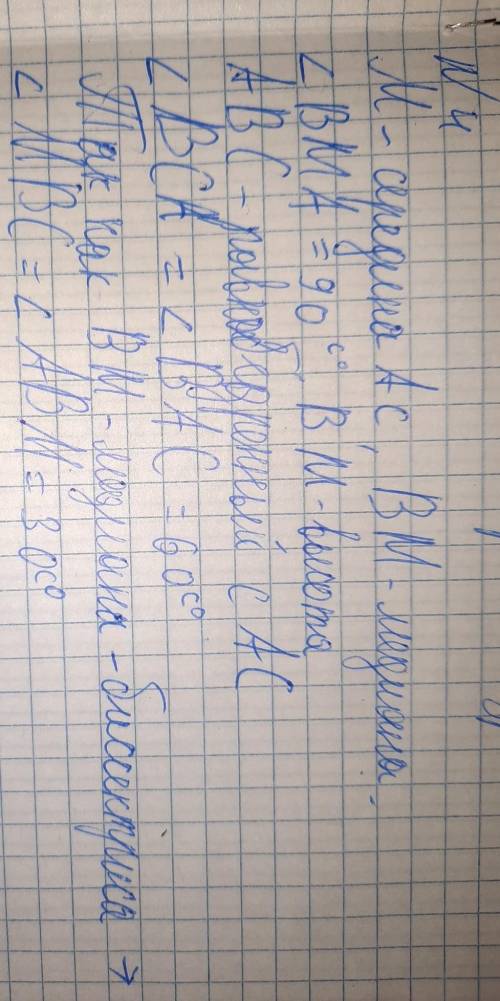 N4
М - середина АС, ВМ - медиана.
∠ ВМА = 90 c° ВМ - высота
АВС - равнобедренный с АС
∠ ВСА = ∠ ВАС = 60c°
Так как ВМ - медиана - биссектриса →
∠ МВС = ∠ АВМ = 30c°